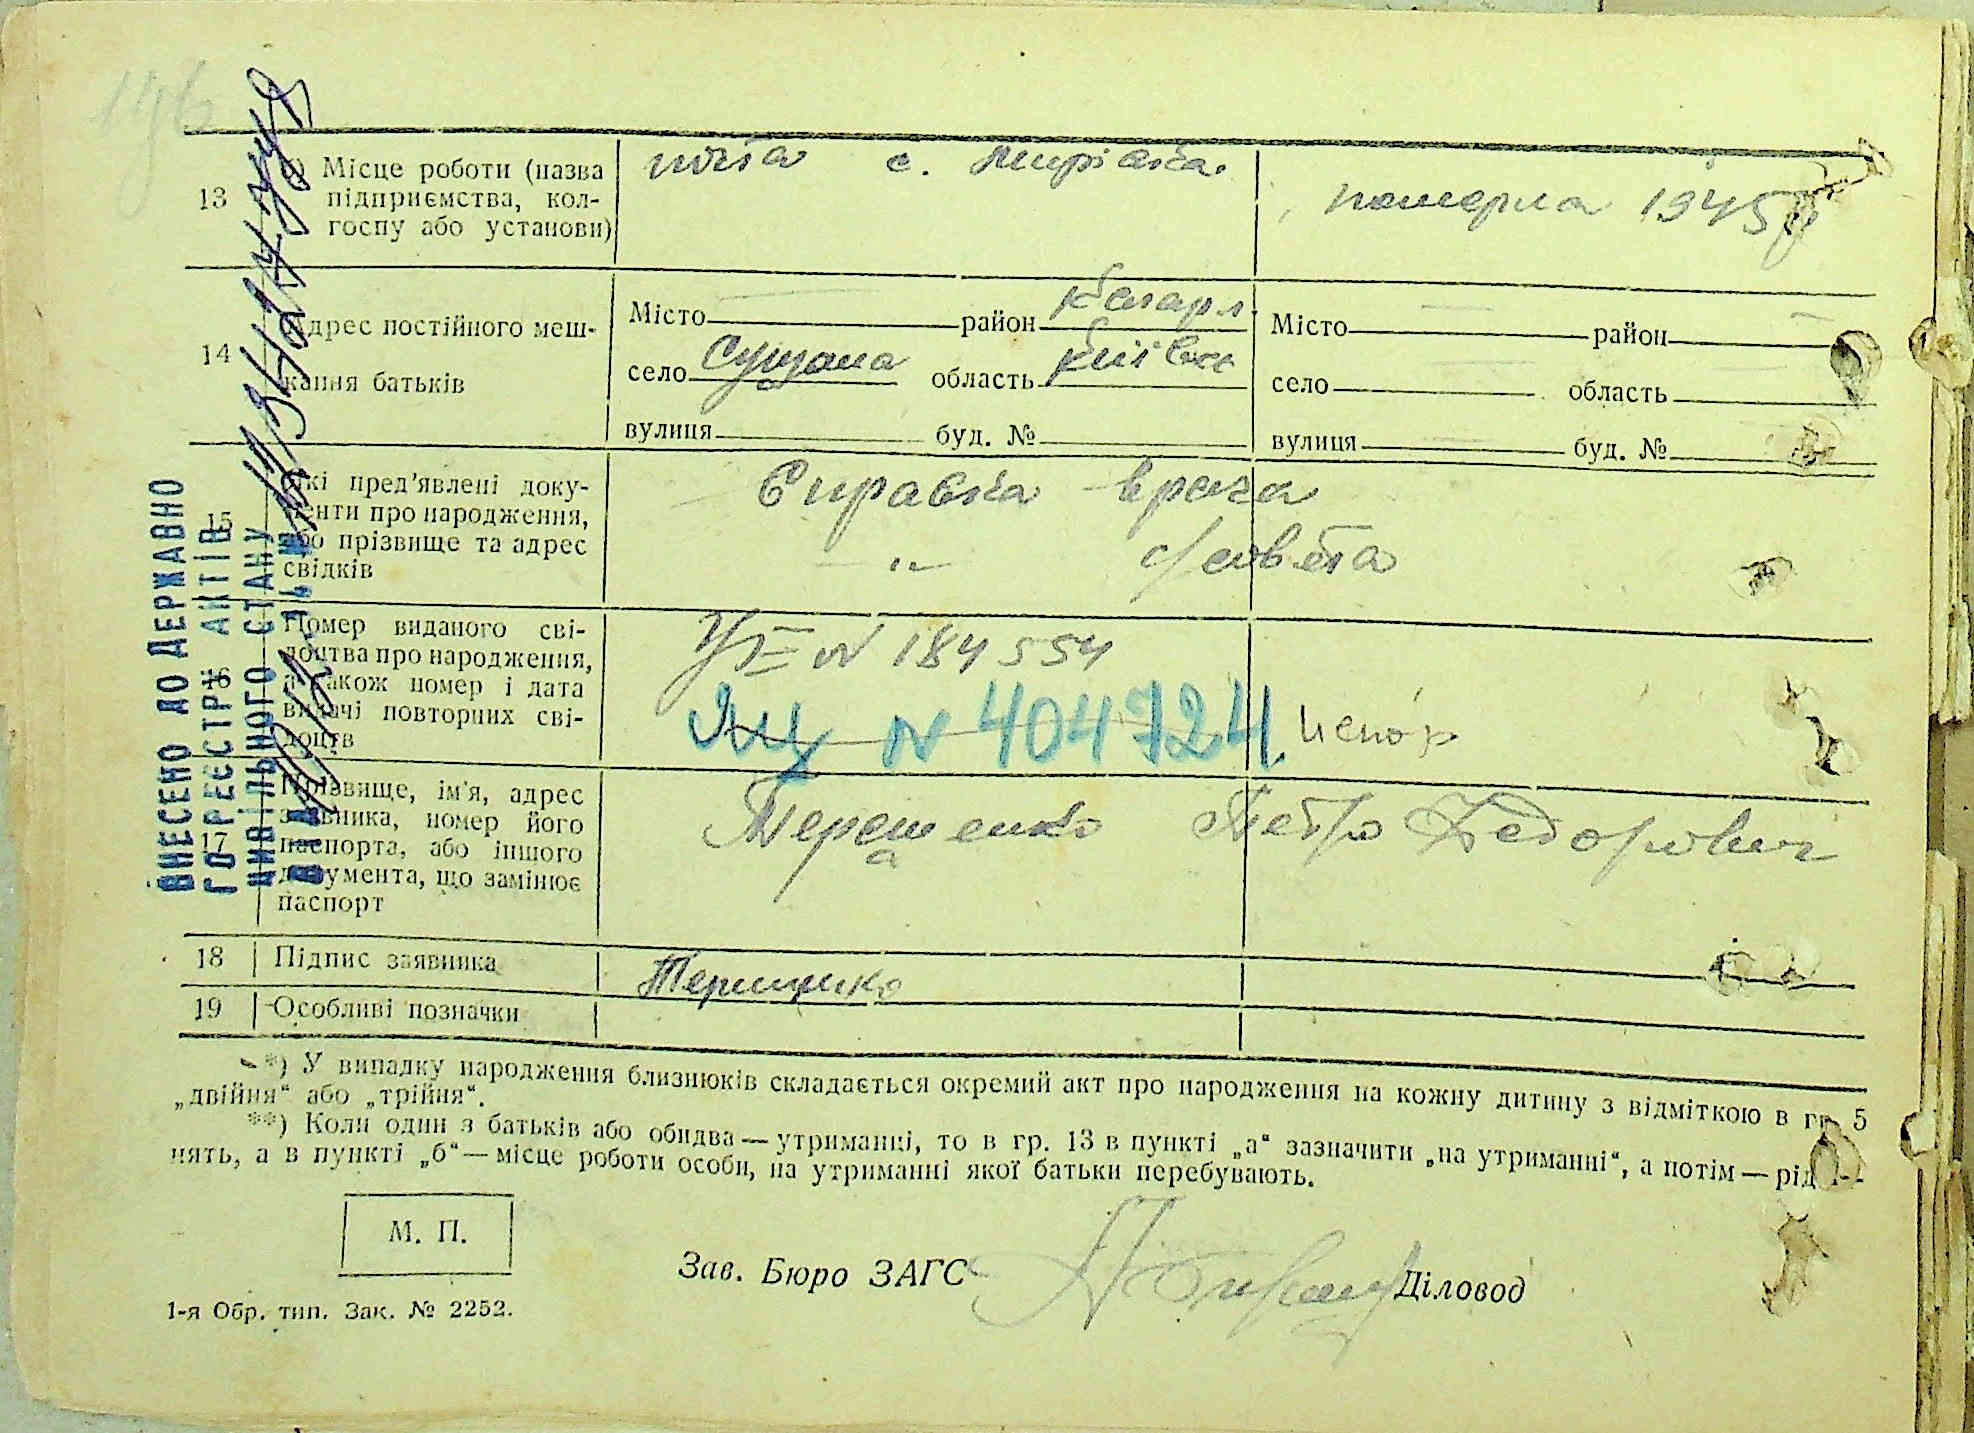 13 Місце роботи (назва
підприємства, кол-
госпу або установи)
пошта с. Мирівка.
померла 1945 р
14 Адрес постійного меш-
кання батьків
Місто район Кагарл.
село Сущана область Київськ
вулиця буд. №
Місто район
село область
вулиця буд. №
15 Які пред’явлені доку-
менти про народження,
або прізвище та адрес
свідків
Справка врача
-"- с/совета
16 Номер виданого сві-
доцтва про народження,
а також номер і дата
видачі повторних сві-
доцтв
N 184554
N 404724
17 Прізвище, ім’я, адрес
заявника, номер його
паспорта, або іншого
документа, що замінює
паспорт
Терешенко Петро Федорович
18 Підпис заявника
Терещенко
19 Особливі позначки
*) У випадку народження близнюків складається окремий акт про народження на кожну дитину з відміткою в гр. 5
„двійня“ або „трійня“.
**) Коли один з батьків або обидва — утриманці, то в гр. 13 в пункті „а“ зазначити „на утриманні“, а потім — рід за-
нять, а в пункті „б“ — місце роботи особи, на утриманні якої батьки перебувають.
М. П.
Зав. Бюро ЗАГС Діловод
1-я Обр. тип. Зак. № 2252.
ВНЕСЕНО ДО ДЕРЖАВНО
ГО РЕЄСТРУ АКТІВ
ЦИВІЛЬНОГО СТАНУ